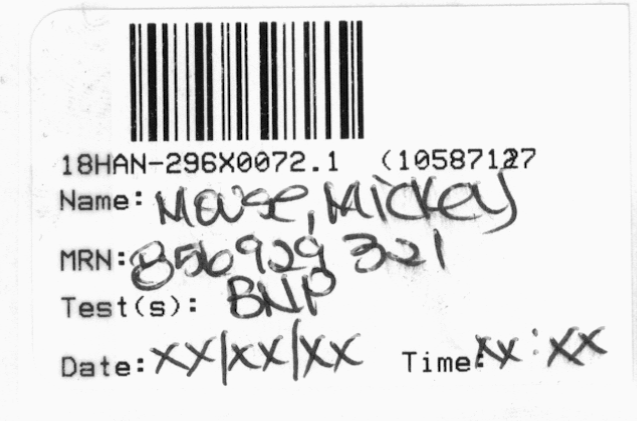 18HAN-296X0072.1 (10587127
Name: Mouse, Mickey
MRN: 856929 321
Test(s): BNP
Date: XX/XX/XX Time: XX:XX